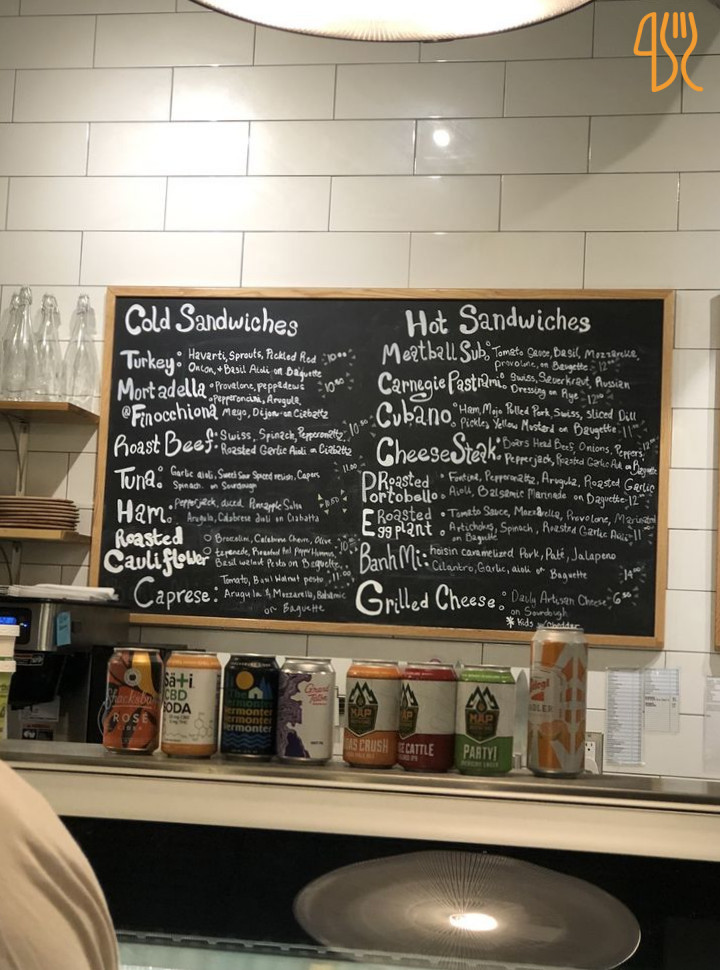 Cold Sandwiches
Turkey: Havarti, Sprouts, Pickled Red
Onion, + Basil Aioli on Baguette
Mortadella Provalone, peppadews
Pepperoncini, Arugula,
@ Finocchiona Mayo, Dijon on Ciabatta
Roast Beef: Swiss, Spinach,
Roasted Garlic Aioli on Ciabatta
Tuna: Garlic aioli, Capers
Spinach on Sourdough 11.00
Ham: Pepper jack, diced Pineapple Salsa
Arugula, Calabrese aioli on Ciabatta
Roasted
Cauliflower Broccolini, Calabrese Chevre, Olive
tapenade,
Basil walnut Pesto on Baguette
Caprese: Tomato, Basil Walnut pesto, 11.00
Arugula, Mozzarella, Balsamic
on Baguette
Hot Sandwiches
Meatball Sub: Tomato Sauce, Basil, Mozzarella,
provolone, on Baugette
Carnegie Pastrami: Swiss, Saverkraut, Russian
Dressing on Rye
Cubano: Ham, Mojo Pulled Pork, Swiss, Sliced Dill
Pickles Yellow Mustard on Baugette
Cheese Steak: Boars Head Beef, Onions, Peppers
Pepperjack, Roasted Garlic Aioli on Baguette
Roasted
Portobello: Fontina, Arugula, Roasted Garlic
Aioli, Balsamic Marinade on Baguette
Roasted
Eggplant: Tomato Sauce, Mozzarella, Provolone,
Artichokes, Spinach, Roasted Garlic Aioli
on Baguette
Banh Mi: hoisin caramelized Pork, Paté, Jalapeno
Cilantro, Garlic, aioli on Baguette 14.00
Grilled Cheese: Daily Artisan Cheese
on Sourdough
* Kids w/ Cheddar
Shacksbury
ROSÉ
CIDER
Sati
CBD
SODA
The
Vermonter
Vermonter
Vermonter
Grand
Teton
MAP
CRUSH
MAP
CATTLE
MAP
PARTY!